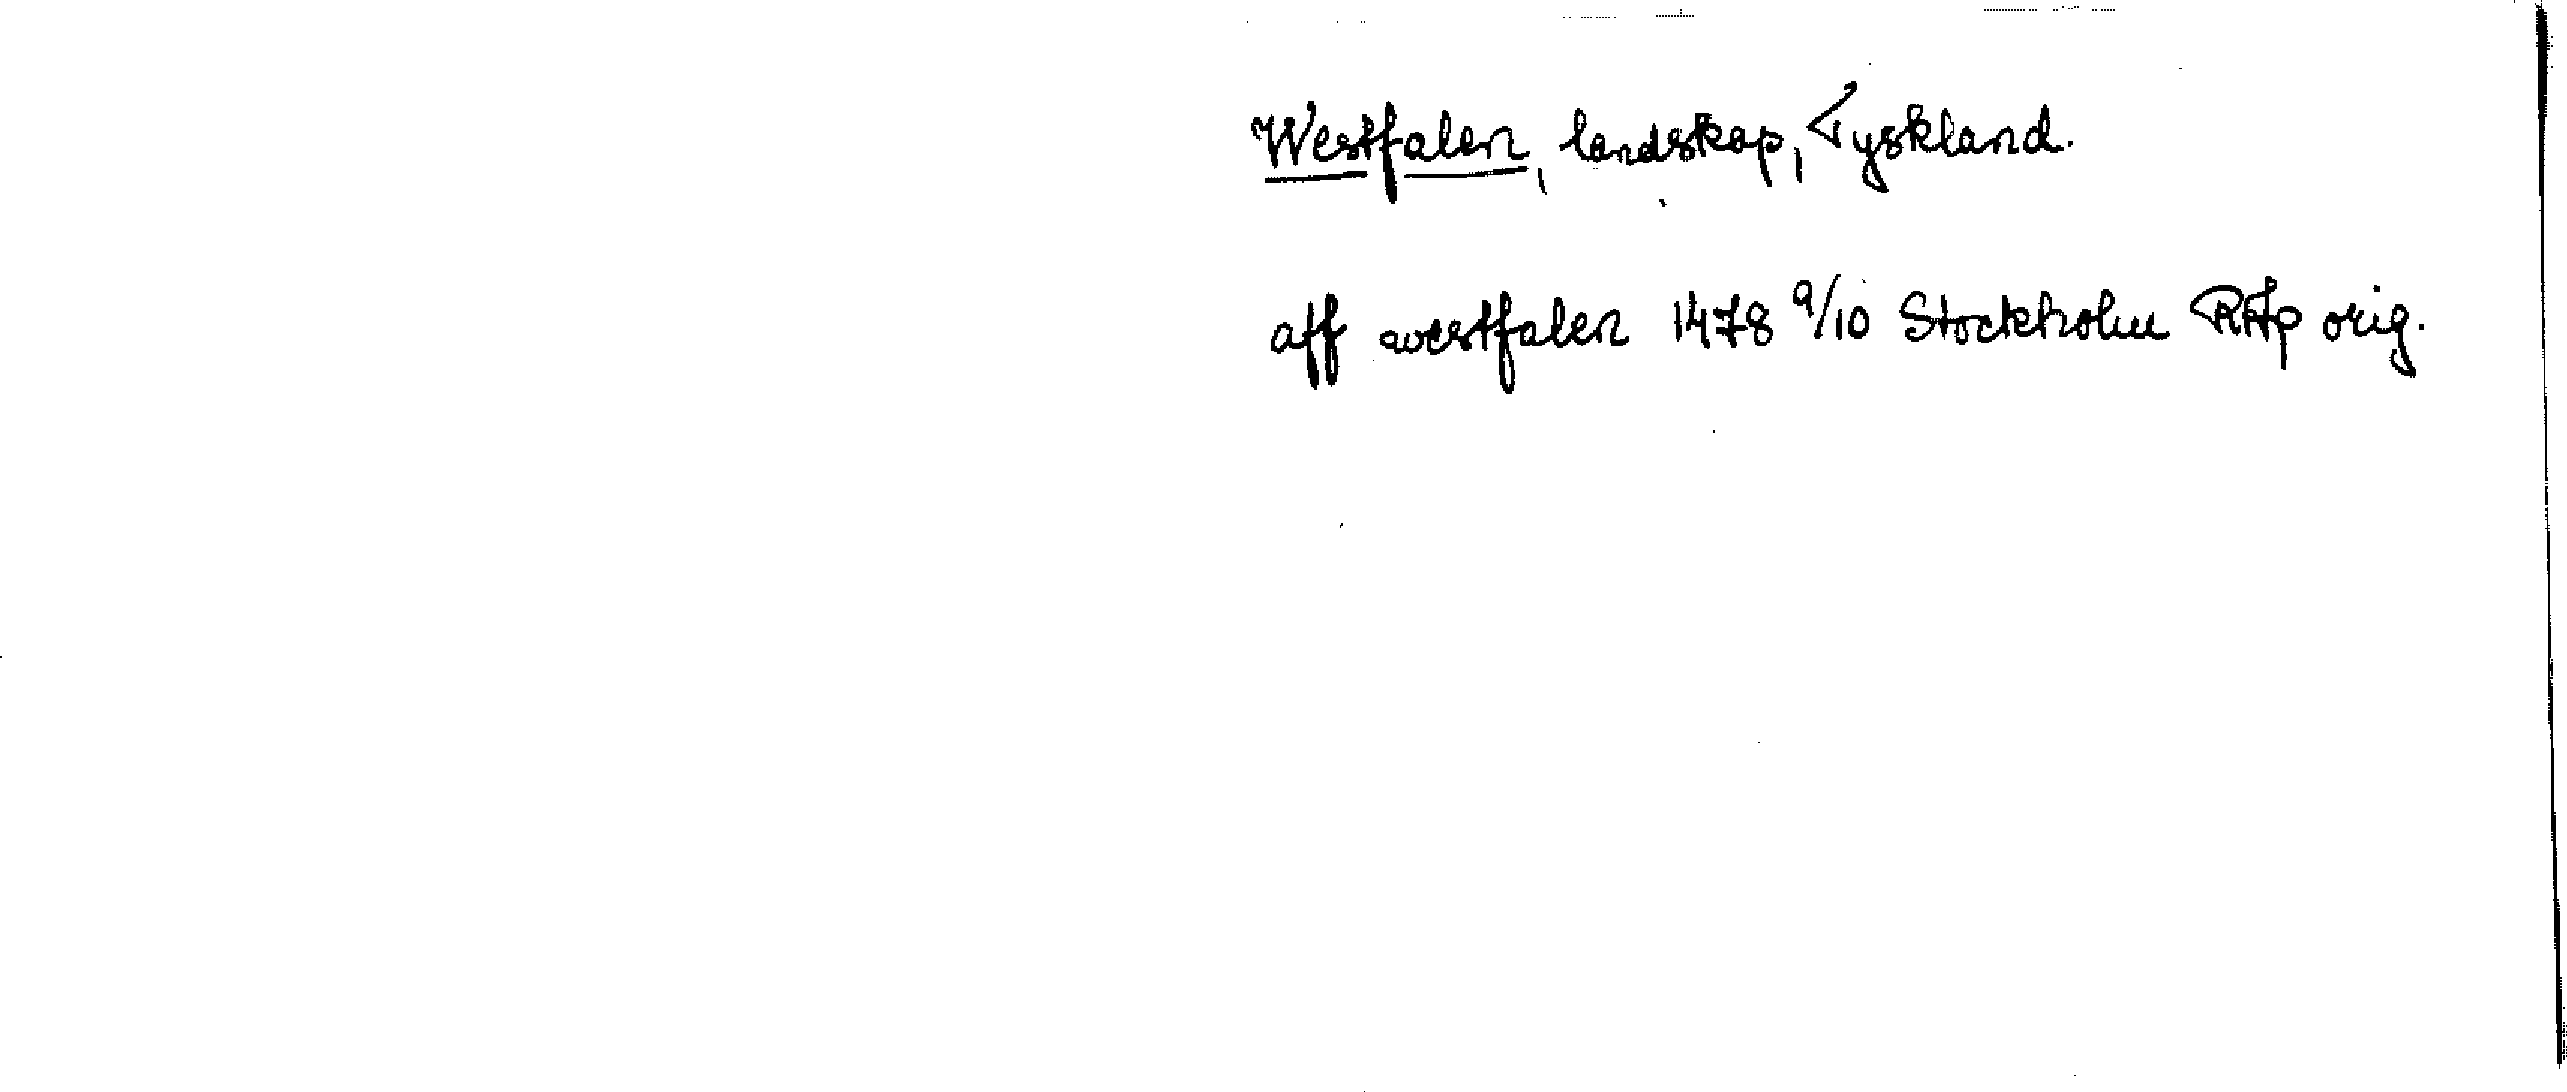 Westfalen, landskap, Tyskland.
aff westfalen 1478 9/10 Stockholm RAp orig.